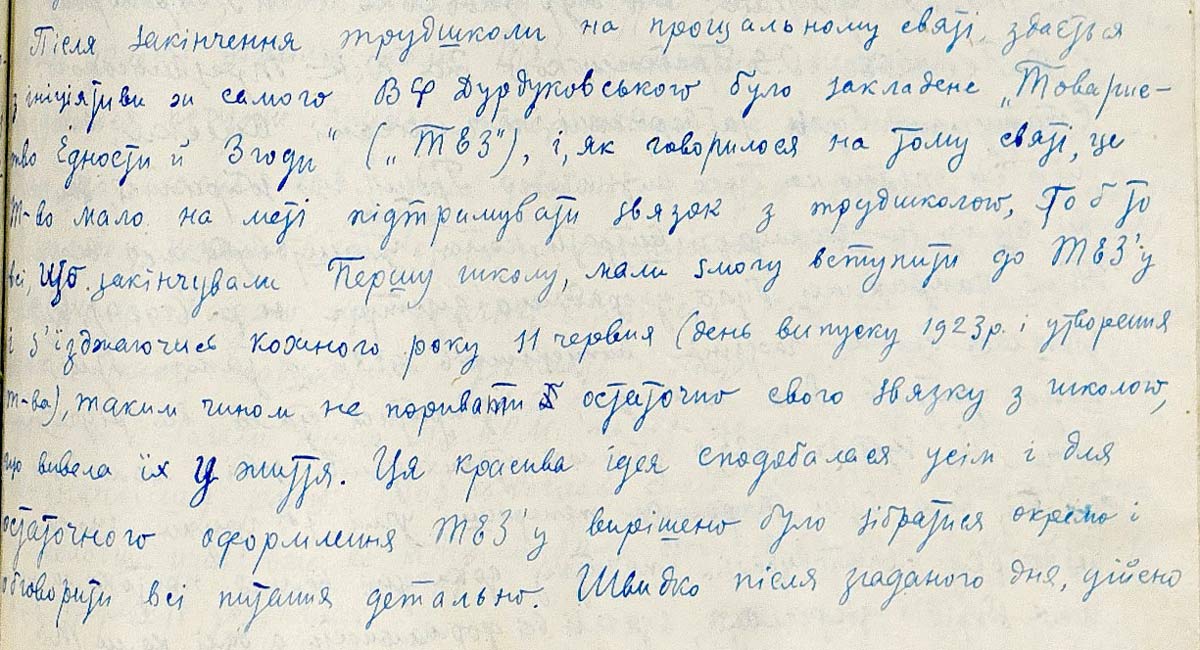 Після закінчення трудшколи на прощальному святі, здається
з ініціятиви ж самого В Ф Дурдуковського було закладене „Товарис-
тво Єдности й Згоди" („ТЕЗ"), і, як говорилося на тому святі, це
т-во мало на меті підтримувати звязок з трудшколою, тобто
всі, що закінчували Першу школу, мали змогу вступити до ТЕЗ'у
і з'їзджаючись кожного року 11 червня (день випуску 1923 р. і утворення
т-ва), таким чином не поривати остаточно свого звязку з школою,
що вивела їх у життя. Ця красива ідея сподобалася усім і для
остаточного оформлення ТЕЗ'у вирішено було зібратися окремо і
обговорити всі питання детально. Швидко після згаданого дня, дійсно